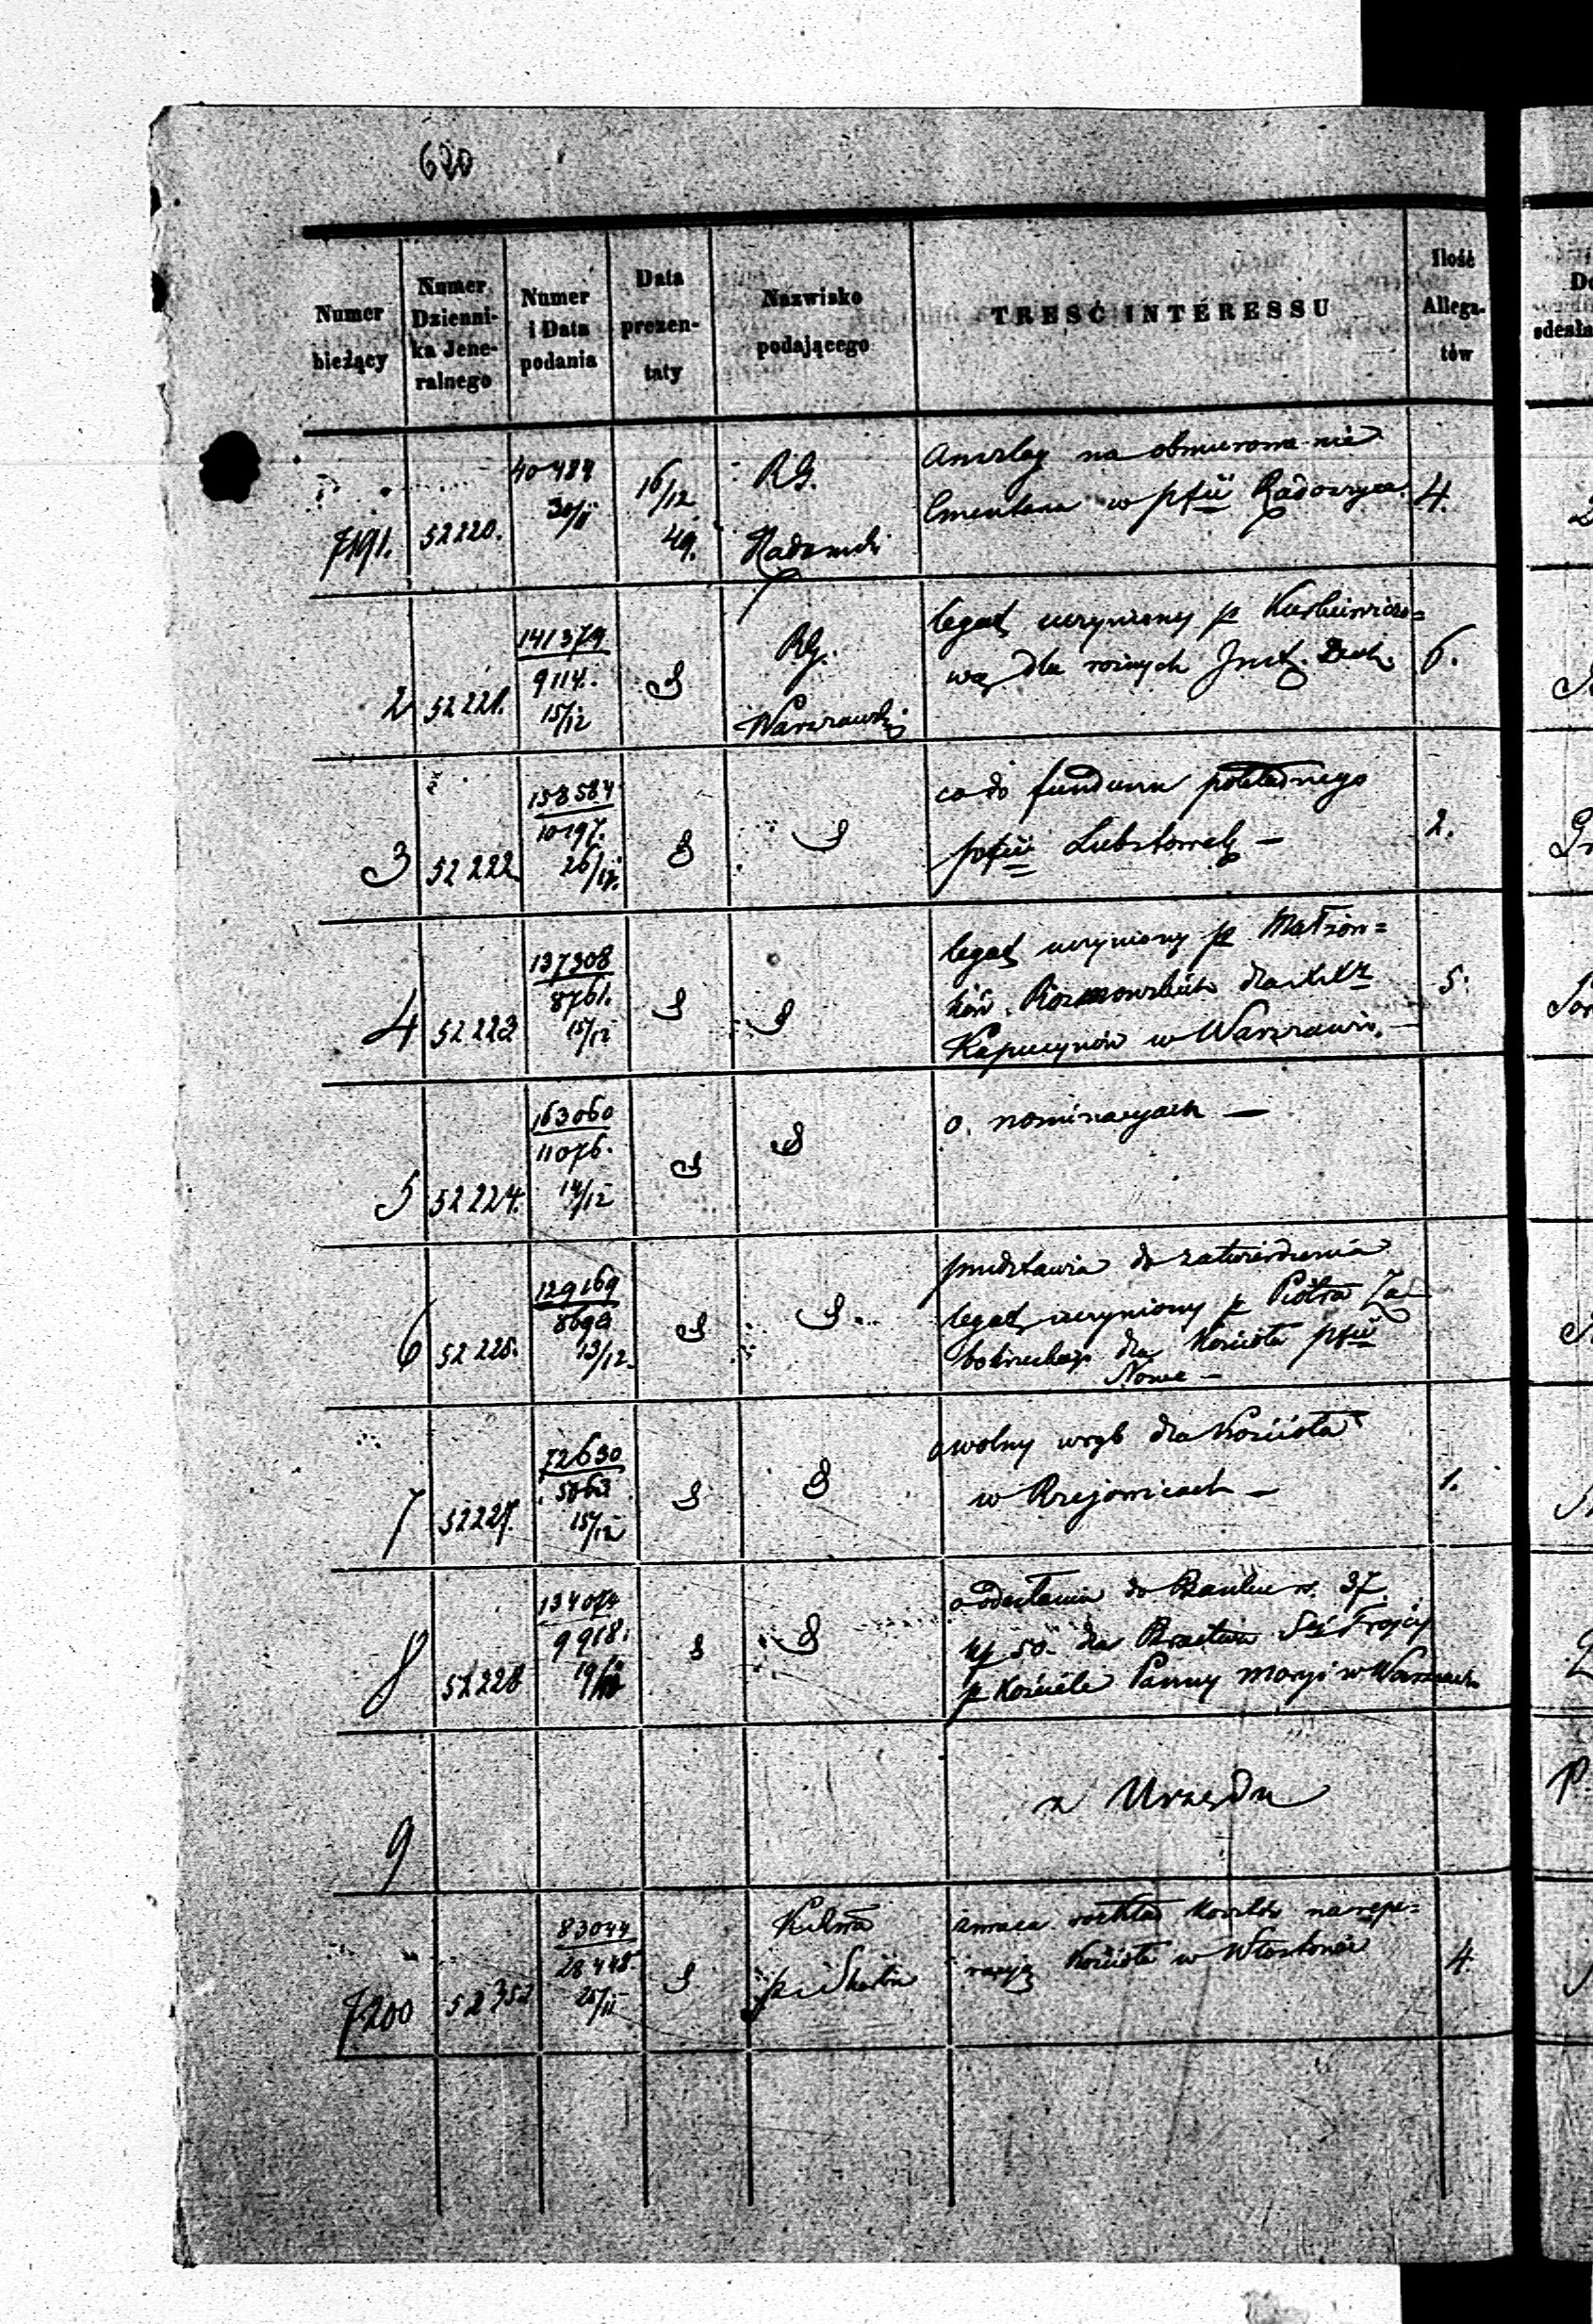 620
Numer bieżący | Numer Dziennika Jeneralnego | Numer i Data podania | Data prezentaty | Nazwisko podającego | TREŚĆ INTERESSU | Ilość Allegatów
7191. | 52220. | 40484 30/11 | 16/12 49. | R.G. Radomski | Anszlag na obmurowanie
Cmentarza w pfii Radoszyce. | 4.
2 | 52221. | 141379 9114. 15/12 | S | R.G. Warszawski | legat uczyniony p
wą dla rożnych Inst. Duch. | 6.
3 | 52222 | 158584 10197. 26/12. | S | S | co do funduszu pokładnego
pfii — | 2.
4 | 52223 | 137308 8761. 15/12 | S | S | legat uczyniony p Małżon=
ków dla
Kapucynów w Warszawie. — | 5.
5 | 52224. | 163060 11076. 14/12 | S | S | o nominacyach —
6 | 52225. | 129169 13/12. | S | S | przedstawia do zatwierdzenia
legat uczyniony p Piotra Za
dla Kościoła pfii
Nowe —
7 | 52227. | 72630 5863 15/12 | S | S | o wolny wrąb dla Kościoła
w Rzejowicach — | 1.
8 | 52228 | 9918. | S | S | o odesłaniu do Banku rs. 37
kp 50. dla Bractwa Śtej Trojcy
p Kościele Panny Maryi w Warszawie
9 | z Urzędu
7200 | 52352 | 83044 28448. 25/11 | S | p i Skarbu | zwraca rozkład kosztów na repe=
racyą Kościoła w | 4